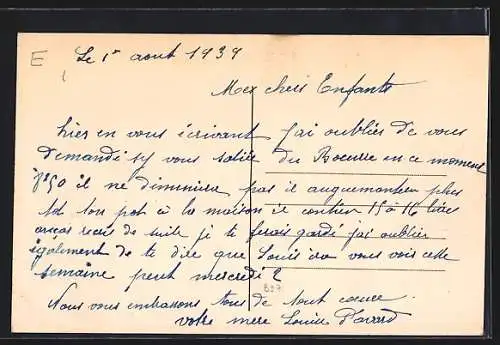 E
Le 1er aout 1939
Mes chers Enfants
hier en vous écrivant j'ai oublier de vous
demandé sy vous saliée du Boeurre en ce moment
il ne diminura pas il augmentera plus
tot ton pot à la maison il contien 15 à 16 livres
de suite je te ferais gardé j'ai oublier
également de te dire que Louis ira vous voir cette
semaine peut mercredi 2
B27
Nous vous embrassons tous de tout coeure
votre mère Louise Davard